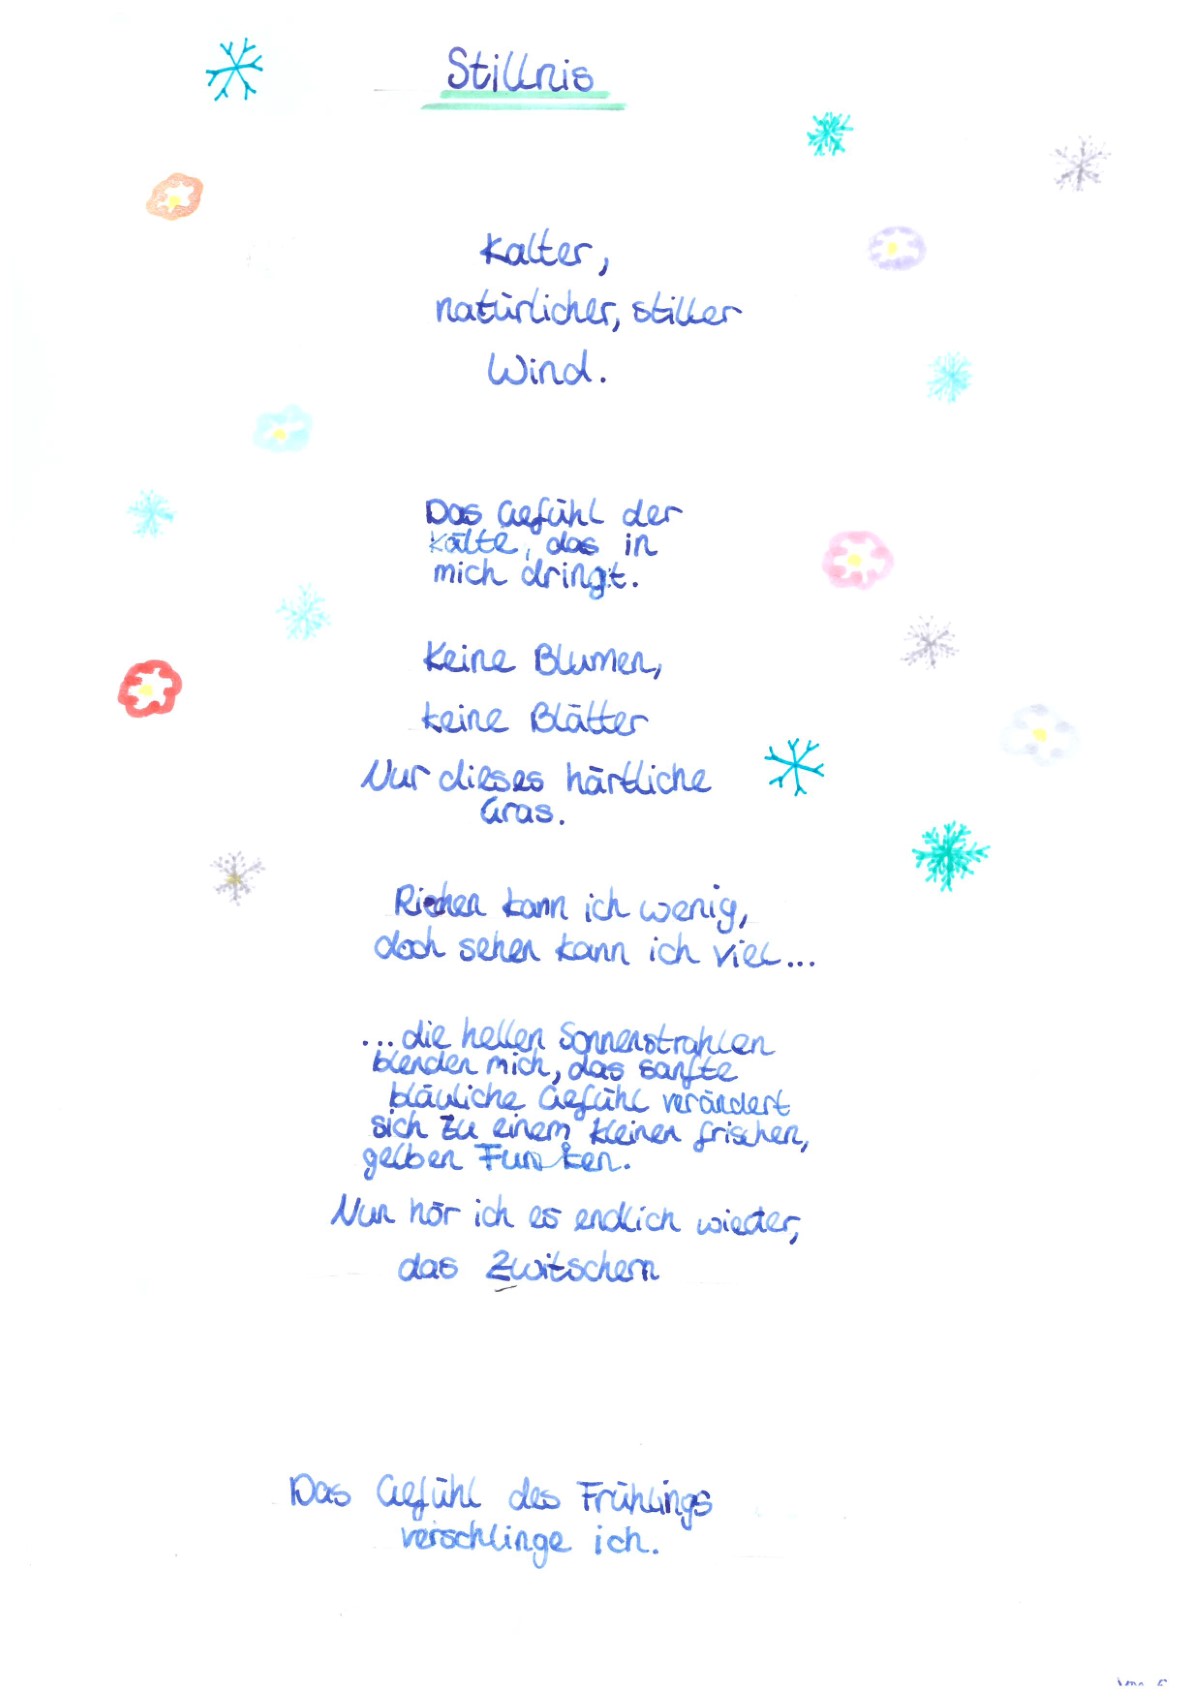 Stillnis
Kalter,
natürlicher, stiller
Wind.
Das Gefühl der
Kälte, das in
mich dringt.
Keine Blumen,
keine Blätter
Nur dieses härtliche
Gras.
Riechen kann ich wenig,
doch sehen kann ich viel...
...die hellen Sonnenstrahlen
blenden mich, das sanfte
bläuliche Gefühl verändert
sich zu einem kleinen frischen,
gelben Funken.
Nun hör ich es endlich wieder,
das Zwitschern
Das Gefühl des Frühlings
verschlinge ich.